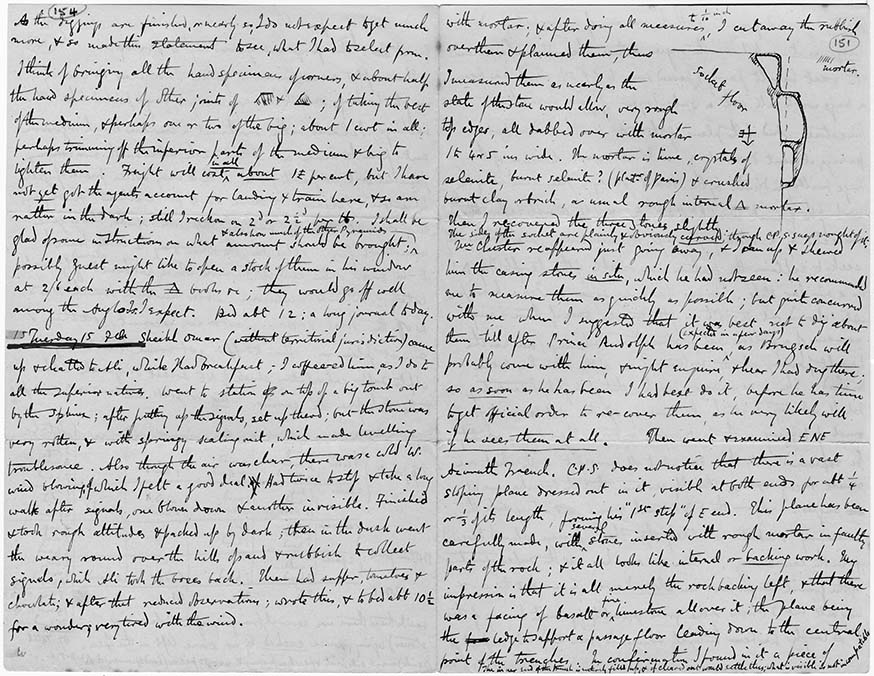 154
As the diggings are finished, or nearly so, I do not expect to get much
more, & so made this statement to see, what I had to select from.
I think of bringing all the hand specimens of corners, & about half
the hand specimens of other joints of & ; of taking the best
of the medium, & perhaps one or two of the big; about 1 cwt in all;
perhaps trimming off the inferior parts of the medium & big to
lighten them. Freight will cost in all about 15 per cent, but I have
not yet got the agents account for landing & train here, & so am
rather in the dark; still I reckon on 2d or 2½d per lb. I shall be
glad of some instructions on what amount should be brought;
& also how much of the other Pyramids
possibly Guest might like to open a stock of them in his window
at 2/6 each with the Δ books &c; they would go off well
among the Anglo Is. I expect. Bed abt 12; a long journal today.
15 Tuesday 15 Feb Sheikh Omar (without territorial jurisdiction) came
up & chatted to Ali, while I had breakfast; I coffeed him as I do to
all the superior natives. Went to station on top of a big tomb out
by the Sphinx; after putting up the signals, set up there; but the stone was
very rotten, & with springy scaling in it, which made levelling
troublesome. Also though the air was clear, there was a cold W.
wind blowing which I felt a good deal. Had twice to stop & take a long
walk after signals, one blown down & another invisible. Finished
& took rough attitudes & packed up by dark; then in the dusk went
the weary round over the hills of sand & rubbish to collect
signals, which Ali took the boxes back. Then had supper, tomatoes &
chocolate; & after that reduced observations; wrote this, & to bed abt 10½
for a wonder; very tired with the wind.
151
with mortar; & after doing all measures, to 1/10 inch I cut away the rubbish
over them & planned them, thus
mortar.
socket floor
I measured them as nearly as the
state of the stone would allow, very rough
top edges, all dabbed over with mortar
1 to 4 or 5 ins wide. The mortar is lime, crystals of
selenite, burnt selenit? (plastr of paris) & crushed
burnt clay or brick, as usual rough internal Δ mortar.
Then I recovered the three stones slightly
The sides of the socket are plainly & obviously curved; though C.P.S. says nought of it.
Mr Chester reappeared just going away, & I ran up & shewed
him the casing stones in situ, which he had not seen: he recommended
me to measure them as quickly as possible; but quite concurred
with me when I suggested that it was best not to dig about
them till after Prince Rudolph has been (expected in a few days) as Brugsch will
probably come with him, & might enquire, & hear I had dug there;
so as soon as he has been I had best do it, before he has time
to get official order to re-cover them, as he very likely will
if he sees them at all. Then went & examined ENE
Azimuth trench. C.P.S. does not notice that there is a vast
sloping plane dressed out in it, visible at both ends for abt ¼
or ⅓ of its length, forming his "1st step" of E end. This plane has been
carefully made, with several stones inserted with rough mortar in faulty
parts of the rock; & it all looks like internal or backing work. My
impression is that it is all merely the rock backing left, & that there
was a facing of basalt or fine limestone all over it; the plane being
the ledge to support a passage floor leading down to the central
point of the trenches. In confirming this I found in it a piece of